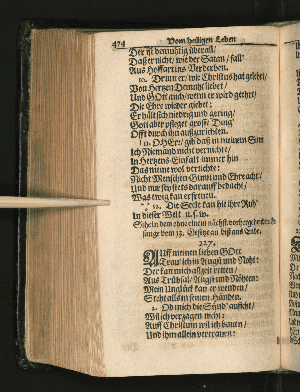 474 Vom heiligen Leben
Der ist demühtig überall/
Daß er nicht/ wie der Satan/ fall'
Aus Hoffart ins Verderben.
10. Derum er/ wie Christus hat gelehrt/
Von Hertzen Demuht liebet/
Und GOtt auch/ wenn er wird geehrt/
Die Ehre wieder giebet:
Er hält sich niedrig und gering/
Gott aber pfleget grosse Ding'
Offt durch ihn außzurichten.
11. O HErr/ gib daß in meinem Sinn
Ich Niemand nicht vernichte/
In Hertzens Einfalt immer hin
Das meine wol verrichte:
Nicht Menschen Gunst und Ehr acht/
Und nur sey stets darauff bedacht/
Was ewig kan erfreuen.
12. Die Seele kan hie ihre Ruh'
In dieser Welt u.s.w.
Siehe in dem ohne einem nächst vorhergehenden Ge-
sange vom 13. Gesetze an biß ans Ende.
227.
AUff meinen lieben GOtt
Trau' ich in Angst und Noht:
Der kan mich allzeit retten/
Aus Trübsal/ Angst und Nöhten:
Mein Unglück kan er wenden/
Steht alls in seinen Händen.
2. Ob mich die Sünd' anficht/
Wil ich verzagen nicht:
Auff Christum wil ich bauen/
Und ihm allein vertrauen: